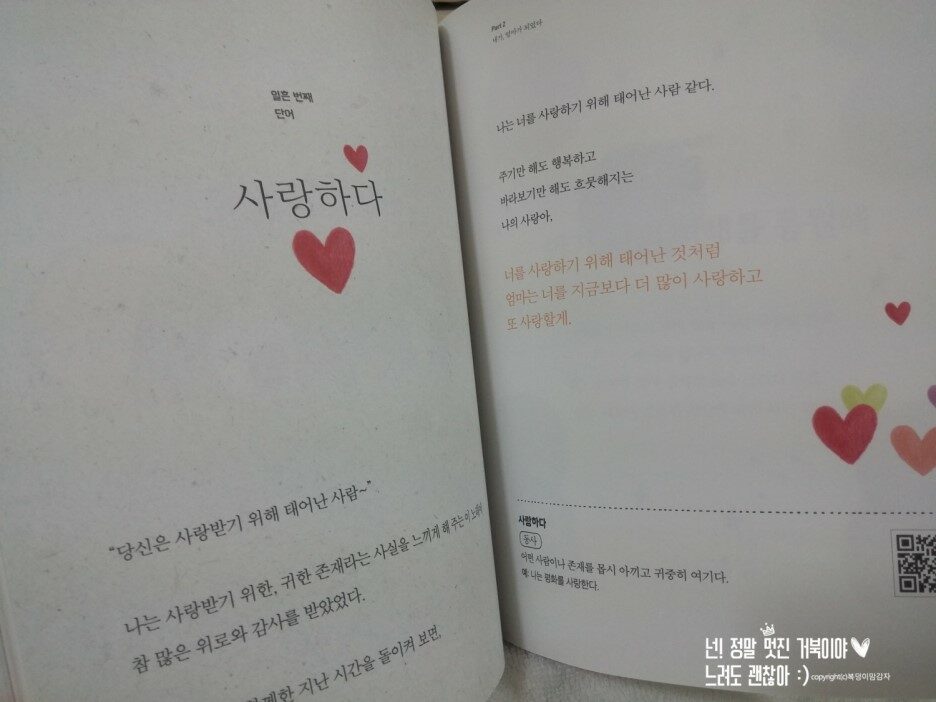 일흔 번째
단어
사랑하다
"당신은 사랑받기 위해 태어난 사람~"
나는 사랑받기 위한, 귀한 존재라는 사실을 느끼게 해 주는 이
참 많은 위로와 감사를 받았었다.
지난 시간을 돌이켜 보면,
Part 2
내가, 엄마가 되었다
나는 너를 사랑하기 위해 태어난 사람 같다.
주기만 해도 행복하고
바라보기만 해도 흐뭇해지는
나의 사랑아,
너를 사랑하기 위해 태어난 것처럼
엄마는 너를 지금보다 더 많이 사랑하고
또 사랑할게.
사랑하다
동사
어떤 사람이나 존재를 몹시 아끼고 귀중히 여기다.
예: 나는 평화를 사랑한다.
넌! 정말 멋진 거북이야
느려도 괜찮아 :) copyright(c)복덩이맘감자